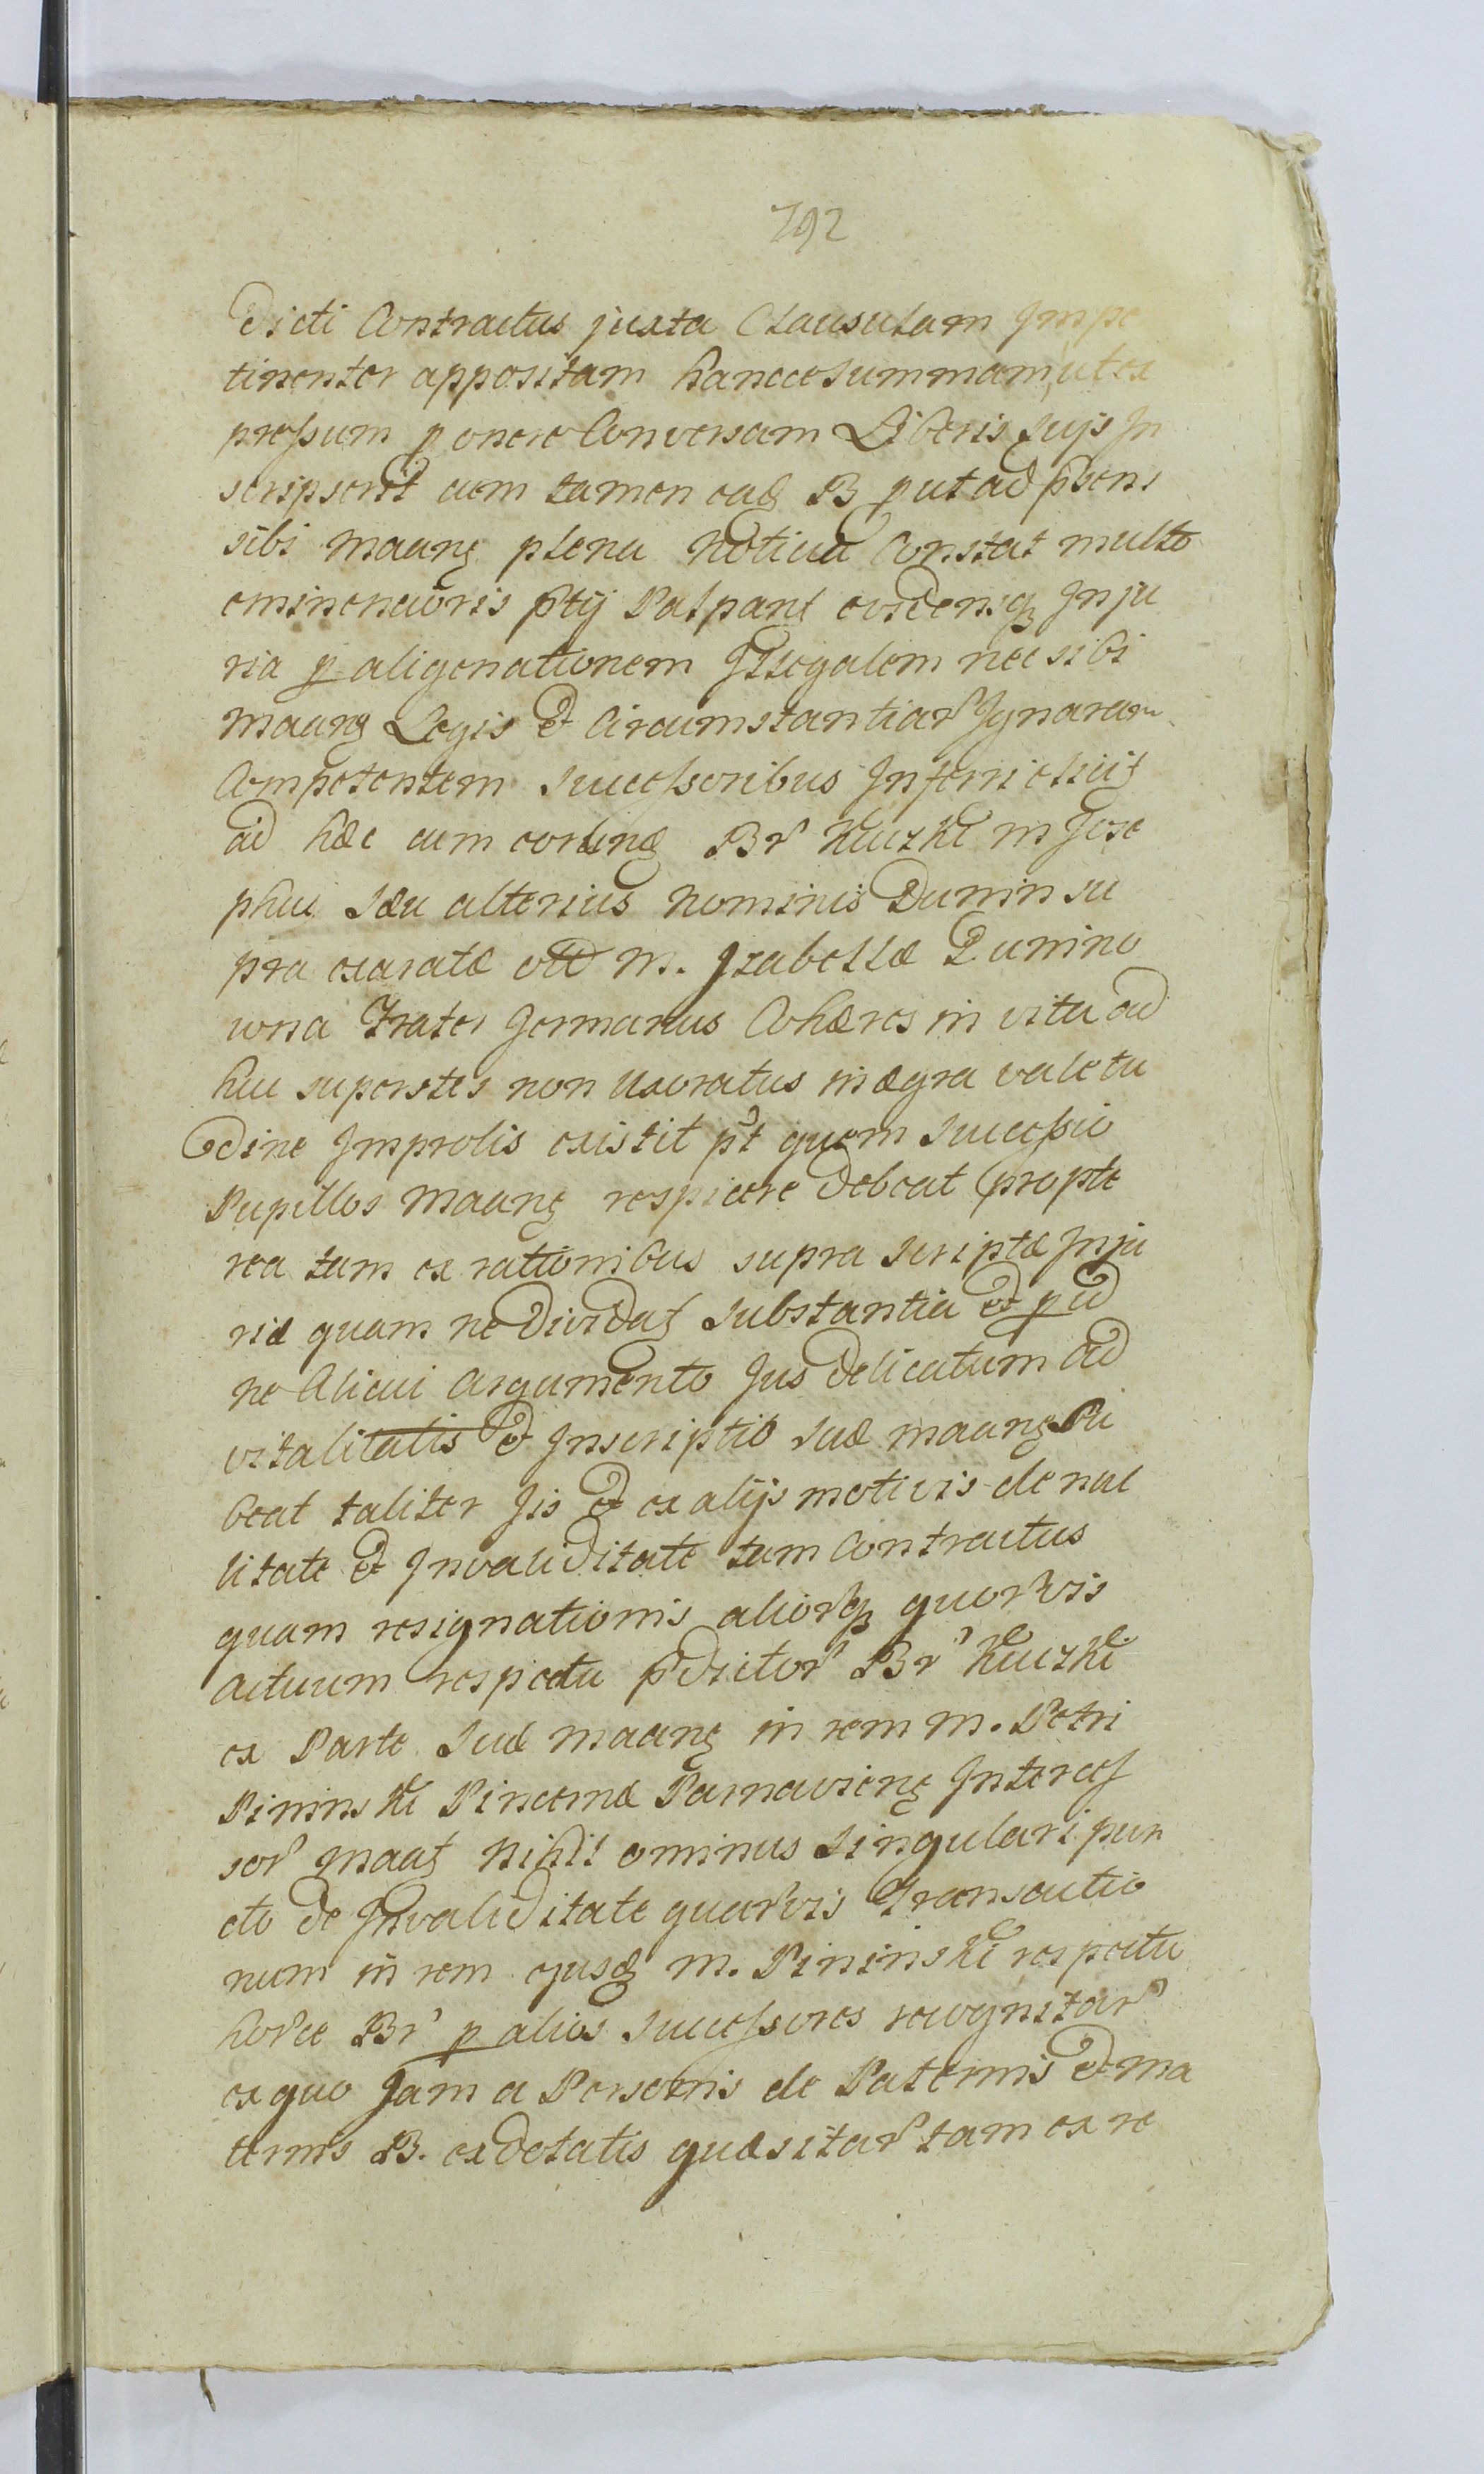 792
Dicti Contractus juxta Clausulam Impe
tinenter appositam hancce summam, ut ex
pressum p onere Conversam Liberis suis In
scripserit cum tamen ead B put ad pñens
sibi Maang plena notitia Constat multo
eminentioris ptij palpant evidensq Inju
ria p aligenationem Illegalem nec sibi
Maang Legis et Circumstantiar Ignaram
Competentem Successoribus Inferri
ad hæc cum Br Kuczki M Jose
phus seu alterius nominis Dunin su
pra exaratæ M. Izabellæ Dunino
wna Frater Germanus Cohæres in vita ad
huc superstes non Uxoratus in ægra valetu
dine Improlis existit pt quem Successio
Pupillos Maang respicere debeat propte
rea tum ex rationibus supra scriptæ Inju
riæ quam ne dividat substantia et p id
ne Alicui Argumento Jus delicatum ad
vitalitatis et Inscriptio suæ Maang
beat taliter Iis et ex alijs motivis de nul
litate et Invaliditate tum Contractus
quam resignationis aliorq quorvis
Actuum respectu pdictor Br Kuczki
ex Parte suæ Maang in rem M. Petri
Pininski Pincernæ Parnaviens Interces
sor Maat nihil ominus singulari pun
cto de Invaliditate quarvis Transactio
num in rem ejusd M. Pininski respectu
horce Br p alios Successores recognitar
ex quo Jam a Personis de Paternis et Ma
ternis B. exdotatis quæsitar tam ex re